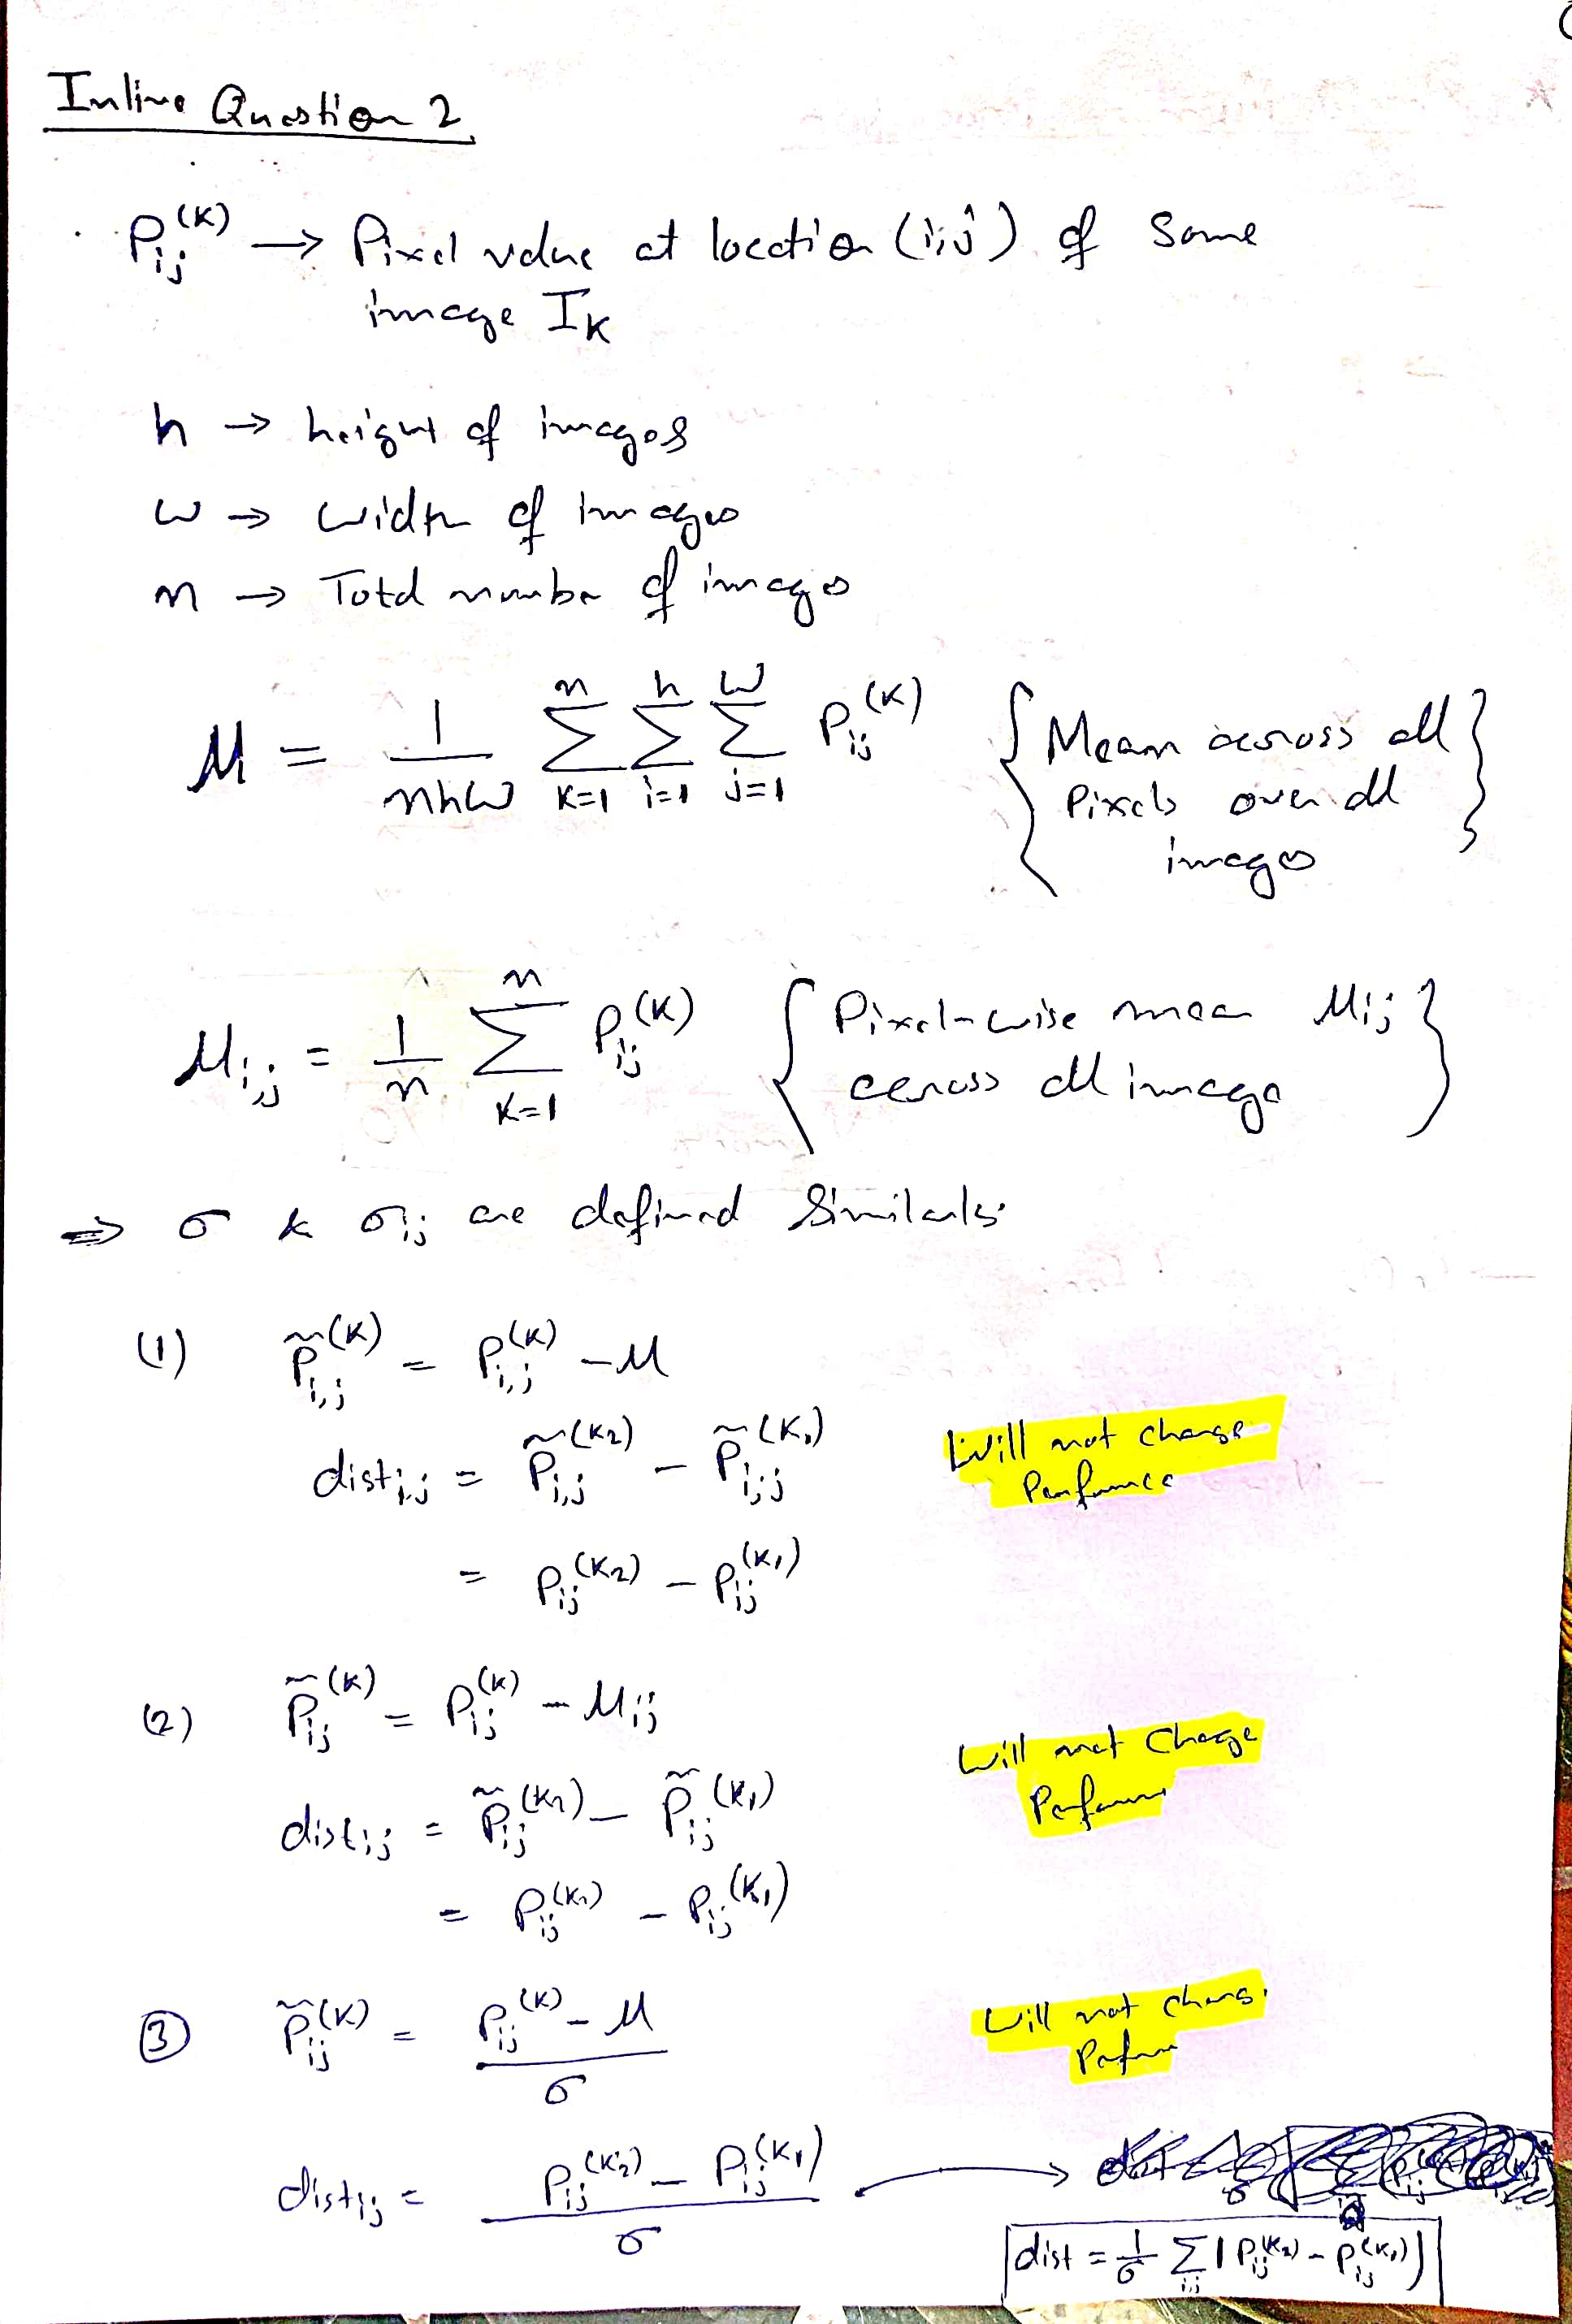 Inline Question 2
P_ij^(K) → Pixel value at location (i,j) of some
image I_K
h → height of images
w → width of images
n → Total number of images
μ = 1/nhw Σ_{K=1}^{n} Σ_{i=1}^{h} Σ_{j=1}^{w} P_ij^(K) { Mean across all
Pixels over all
images }
μ_ij = 1/n Σ_{K=1}^{n} P_ij^(K) { Pixel-wise mean μ_ij
across all image }
⇒ σ & σ_ij are defined similarly.
(1) P̃_{i,j}^(K) = P_{i,j}^(K) - μ
dist_{i,j} = P̃_{i,j}^(K2) - P̃_{i,j}^(K1) Will not change
Performance
= P_ij^(K2) - P_ij^(K1)
(2) P̃_ij^(K) = P_ij^(K) - μ_ij
Will not change
dist_ij = P̃_ij^(K2) - P̃_ij^(K1) Performance
= P_ij^(K2) - P_ij^(K1)
(3) P̃_ij^(K) = (P_ij^(K) - μ) / σ Will not change
Perform
dist_ij = (P_ij^(K2) - P_ij^(K1)) / σ →
dist = 1/σ Σ_ij |P_ij^(K2) - P_ij^(K1)|